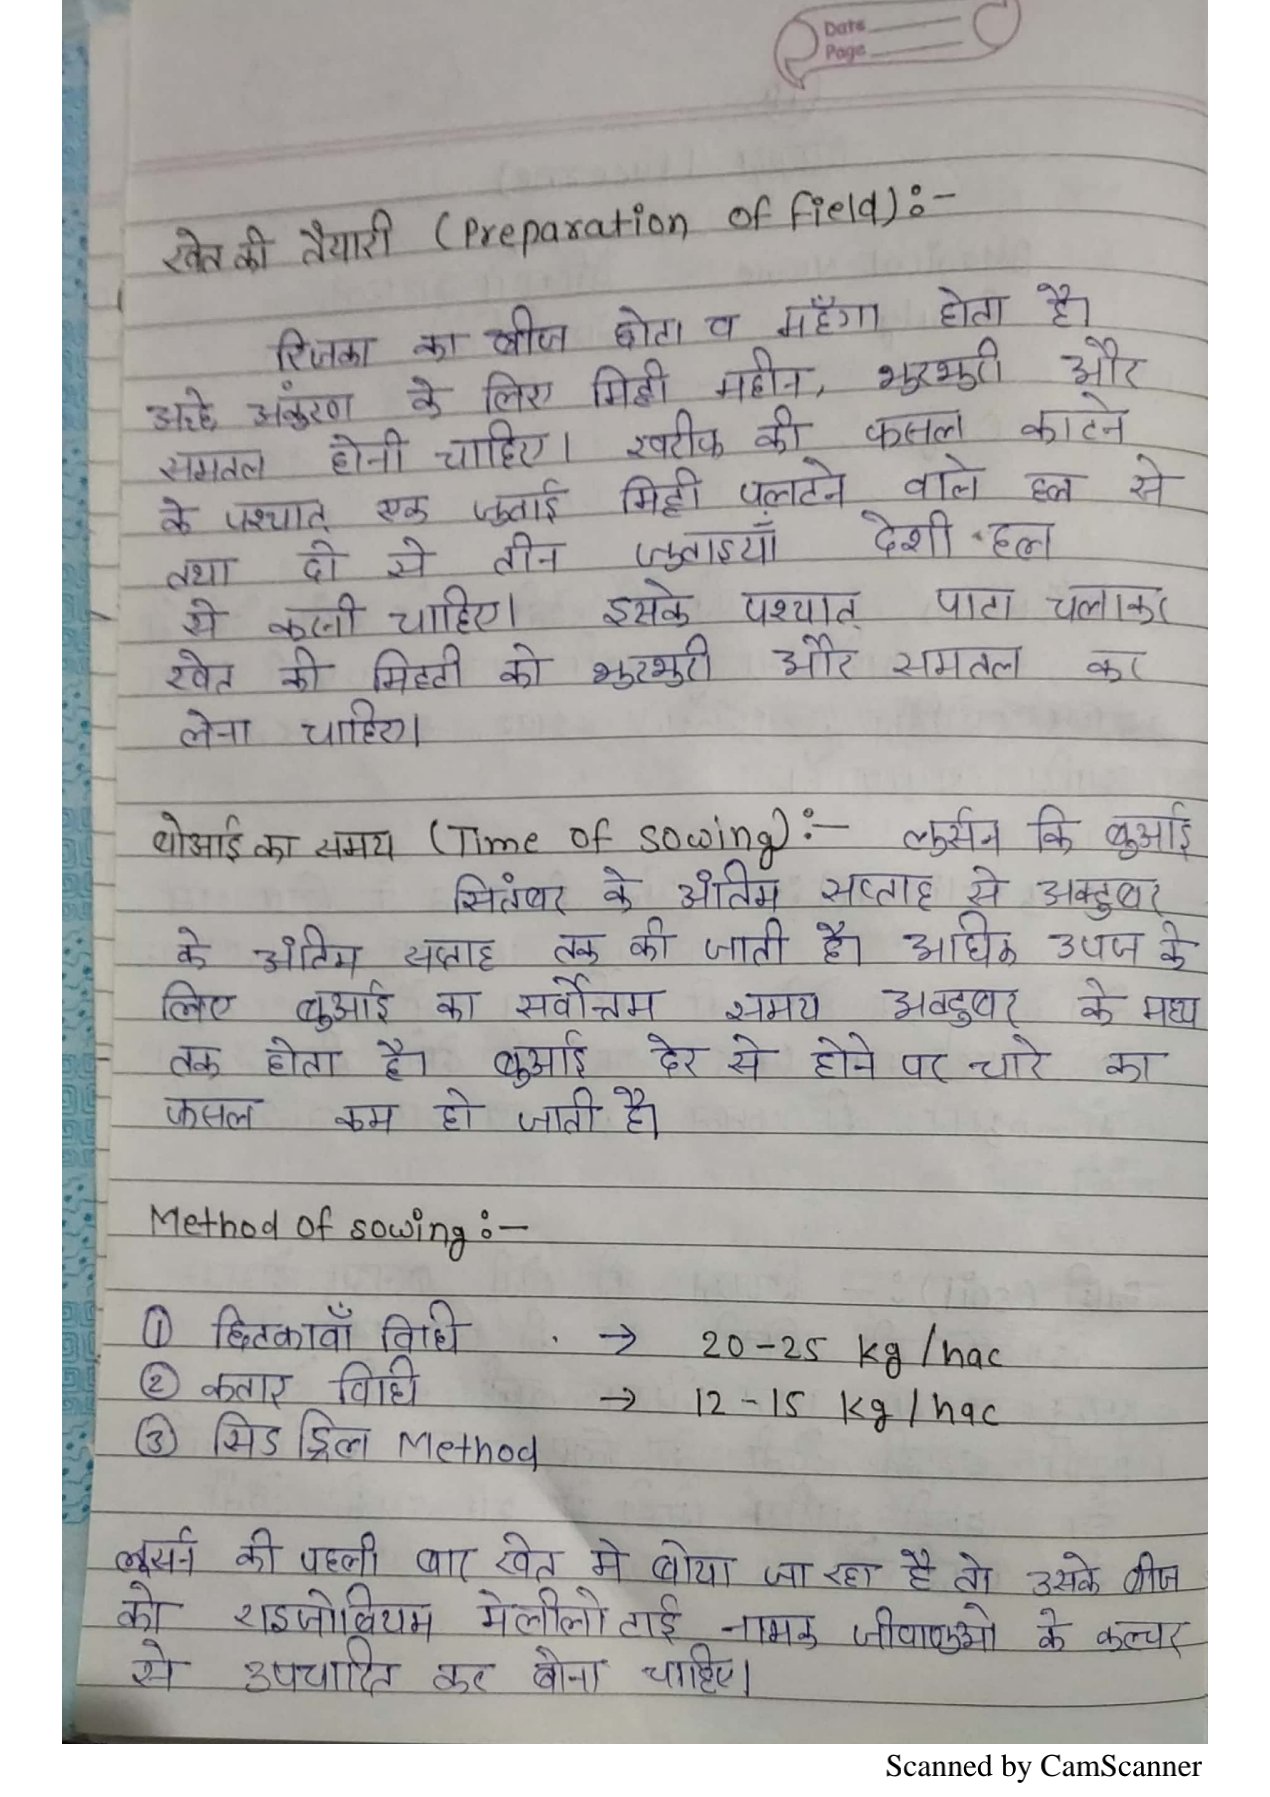 Date
Page
खेत की तैयारी (Preparation of field):-
रिजका का बीज छोटा व महँगा होता है।
अच्छे अंकुरण के लिए मिट्टी महीन, भुरभुरी और
समतल होनी चाहिए। खरीफ की फसल काटने
के पश्चात् एक जुताई मिट्टी पलटने वाले हल से
तथा दो से तीन जुताइयाँ देशी हल
से करनी चाहिए। इसके पश्चात् पाटा चलाकर
खेत की मिट्टी को भुरभुरी और समतल कर
लेना चाहिए।
बोआई का समय (Time of sowing):- लुर्सन कि बुआई
सितंबर के अंतिम सप्ताह से अक्टुबर
के अंतिम सप्ताह तक की जाती है। अधिक उपज के
लिए बुआई का सर्वोत्तम समय अक्टुबर के मध्य
तक होता है। बुआई देर से होने पर चारे का
फसल कम हो जाती है।
Method of sowing:-
① छिटकावाँ विधि → 20-25 kg/hac
② कतार विधि → 12-15 kg/hac
③ सिड ड्रिल Method
लूसर्न की पहली बार खेत मे बोया जा रहा है तो उसके बीज
को राइजोबियम मेलीलोटाई नामक जीवाणुओ के कल्चर
से उपचारित कर बोना चाहिए।
Scanned by CamScanner